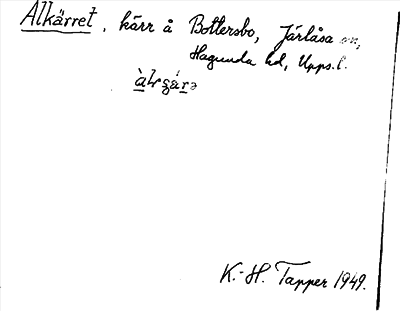 Alkärret, kärr å Bottersbo, Järlåsa sn,
Hagunda hd, Upps. l.
K.-H. Tapper 1949.